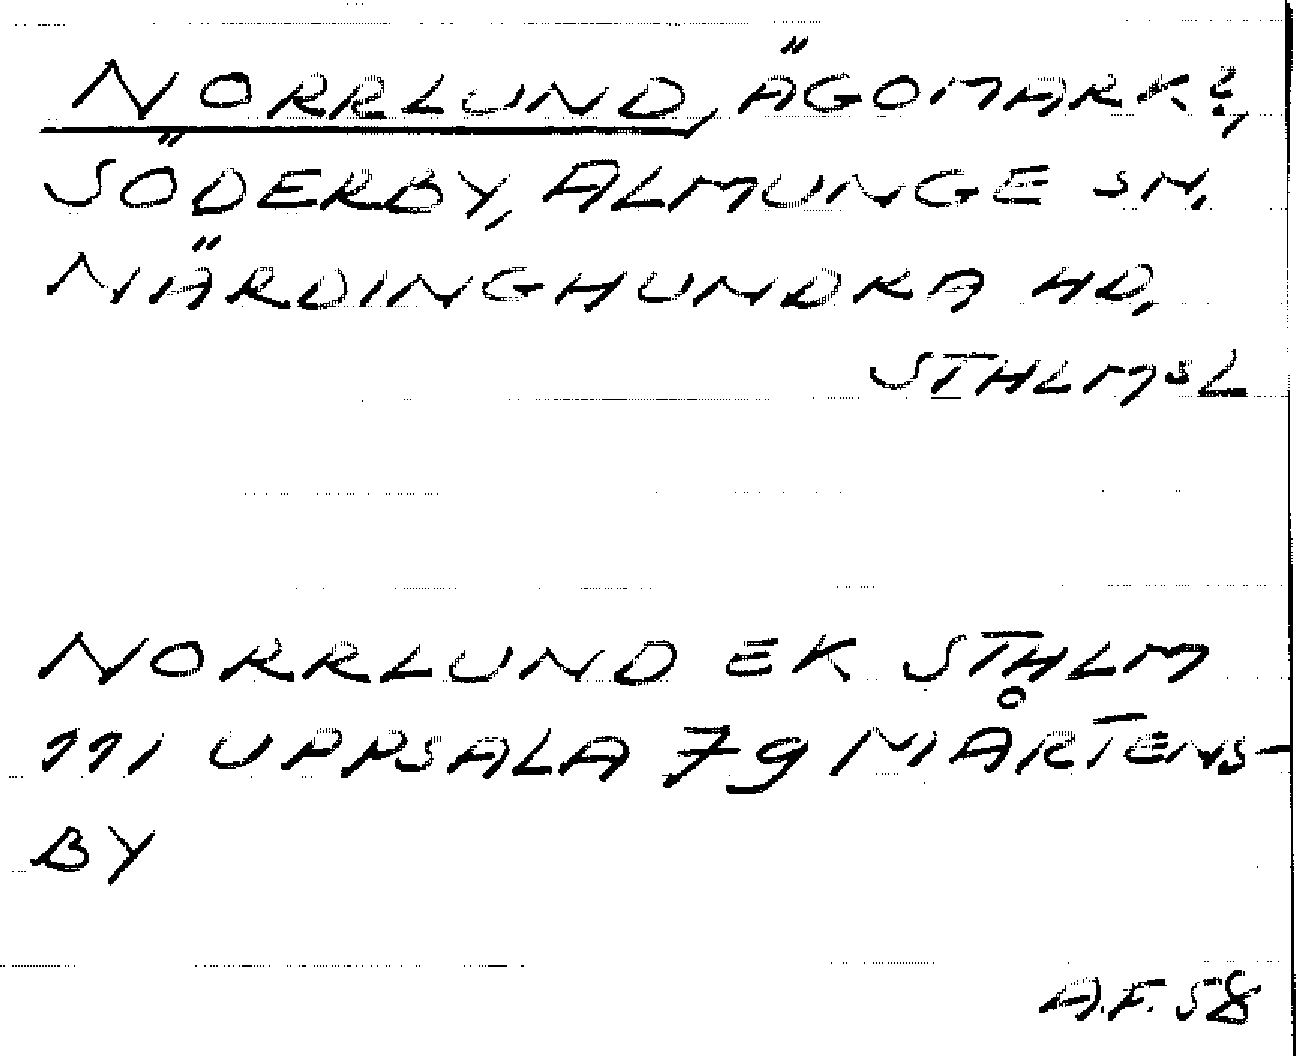 NORRLUND, ÄGOMARK?,
SÖDERBY, ALMUNGE SN.
NÄRDINGHUNDRA HD,
STHLMSL
NORRLUND EK STHLM
111 UPPSALA 79 MÅRTENS-
BY
A.F. 58